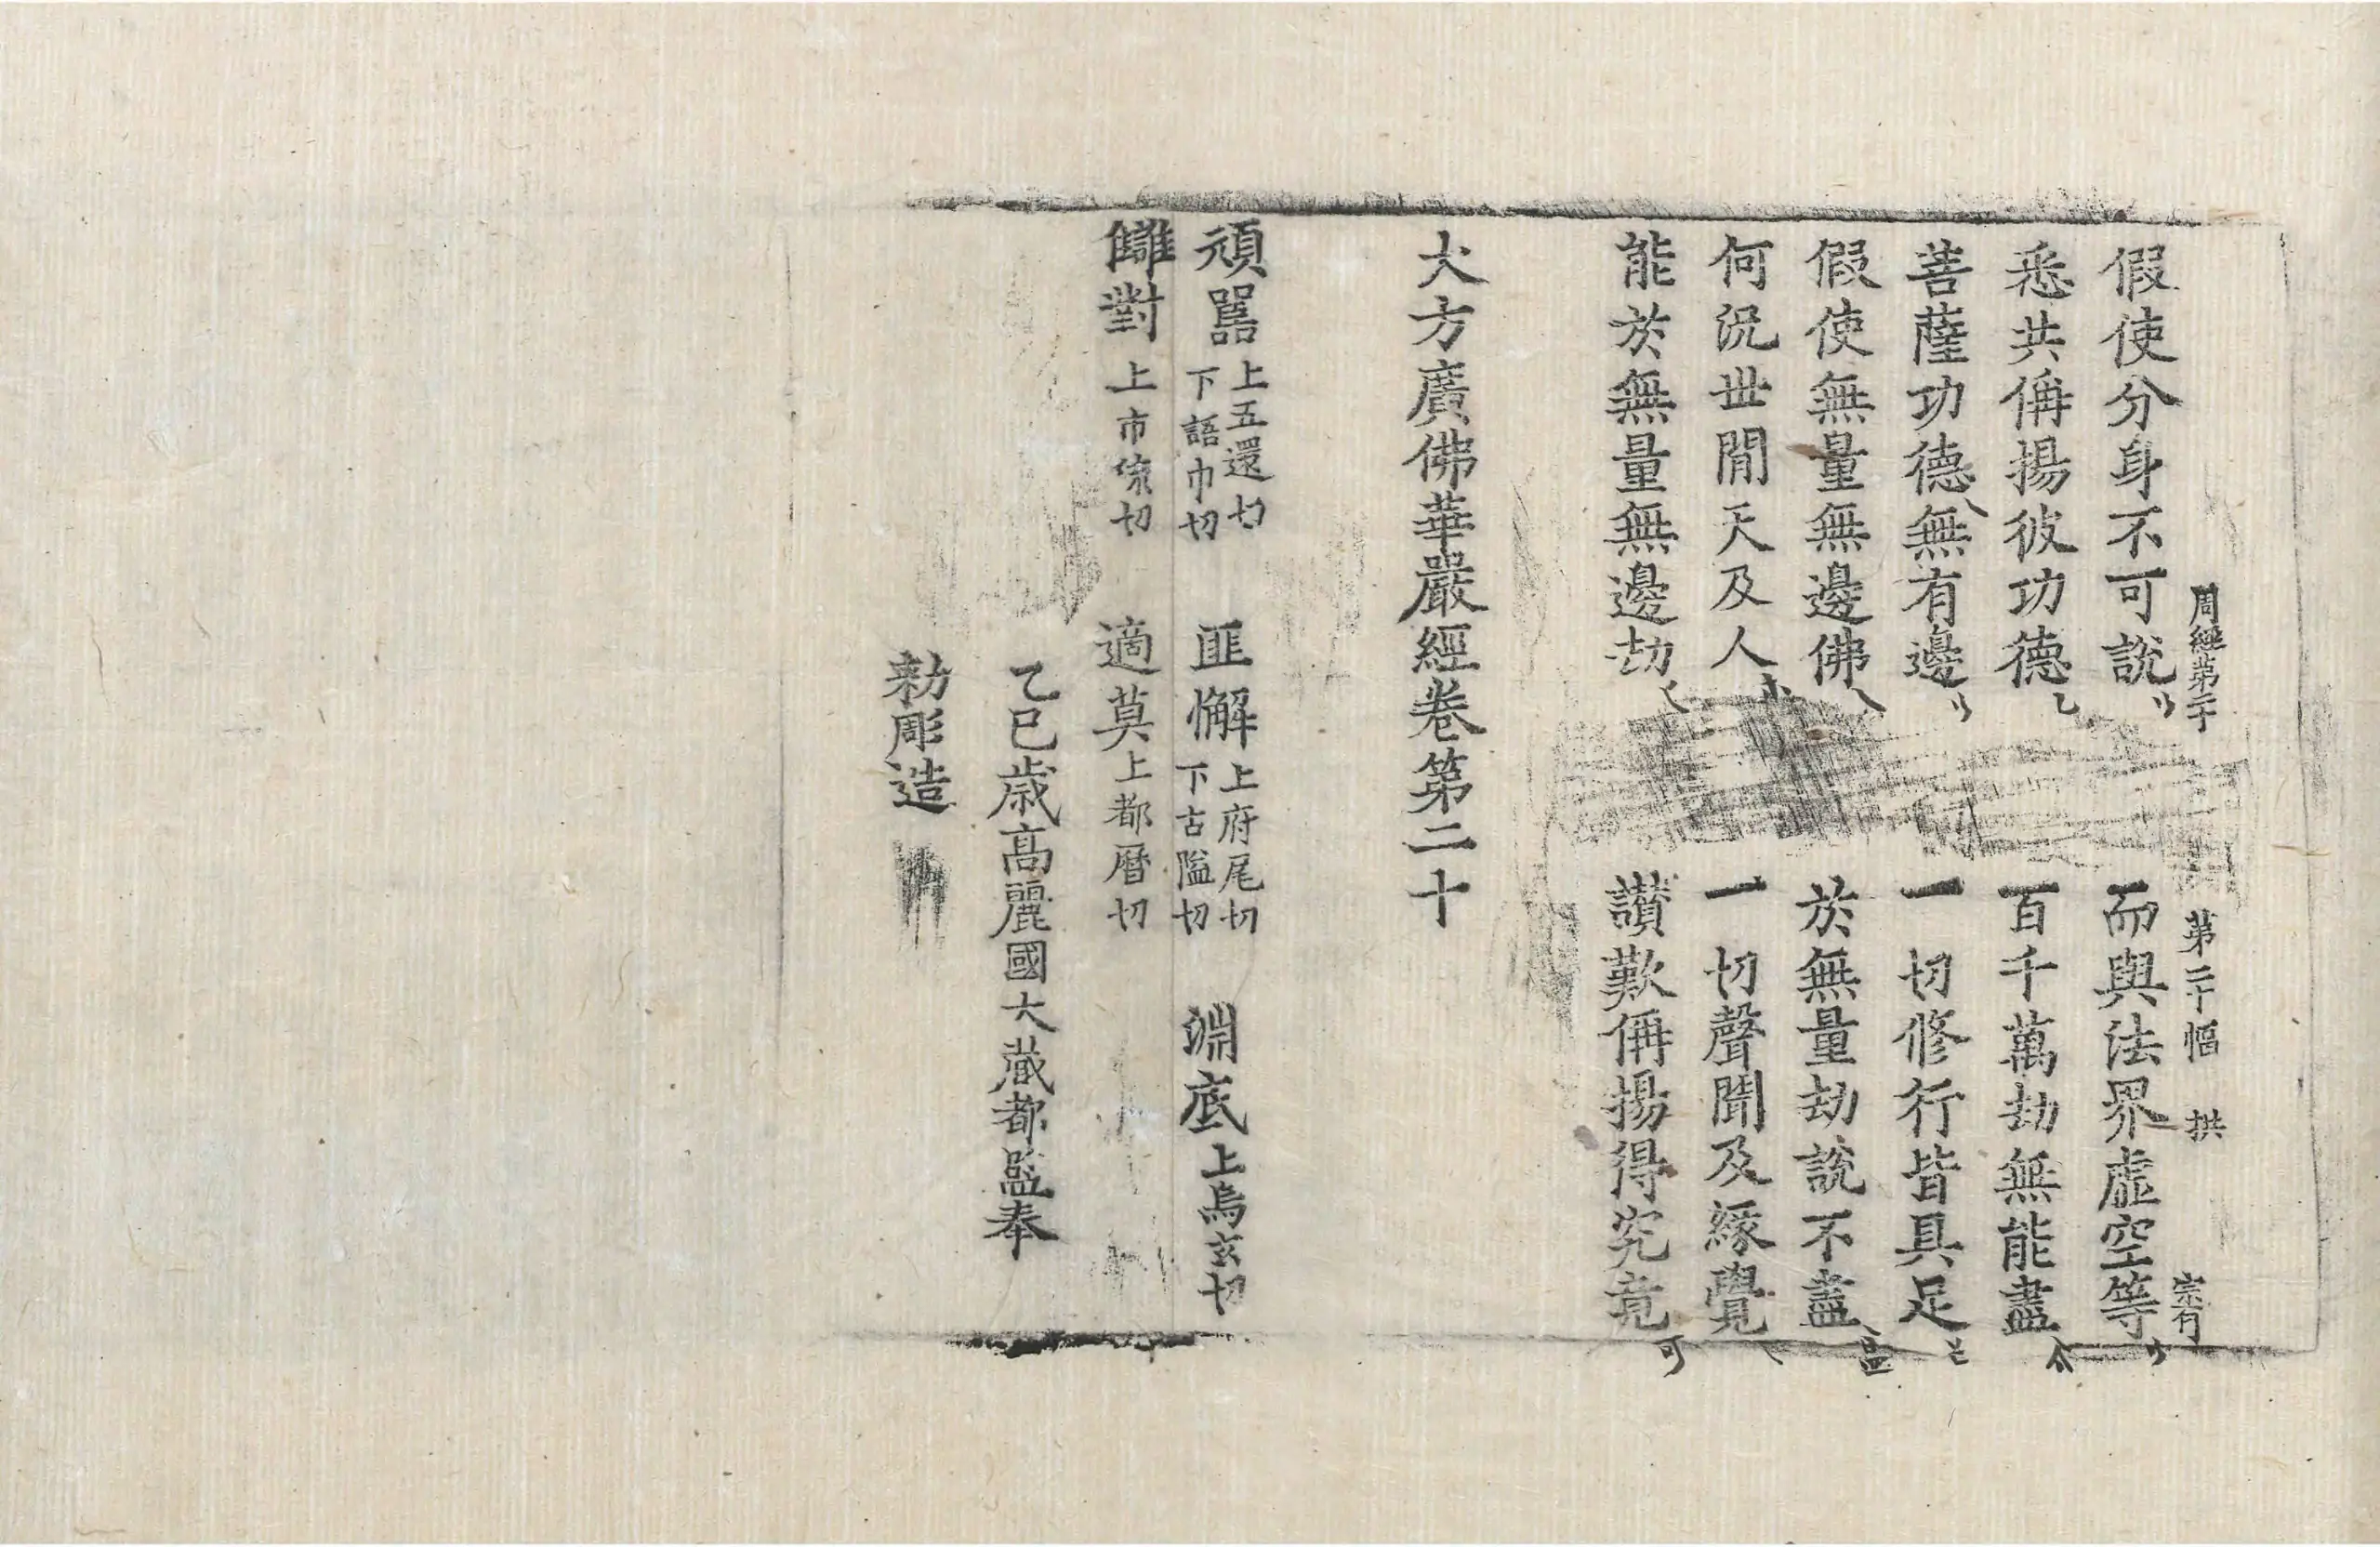 周經第二十 第二十幅 拱 宗有
假使分身不可說 而與法界虛空等
悉共偁揚彼功德 百千萬劫無能盡
菩薩功德無有邊 一切修行皆具足
假使無量無邊佛 於無量劫說不盡
何況丗閒天及人 一切聲聞及緣覺
能於無量無邊劫 讃歎偁揚得究竟
大方廣佛華嚴經卷第二十
頑嚚 上五還切 下語巾切 匪懈 上府尾切 下古隘切 淵底 上烏玄切
讎對 上市流切 適莫 上都曆切
乙巳歲高麗國大藏都監奉
勑彫造